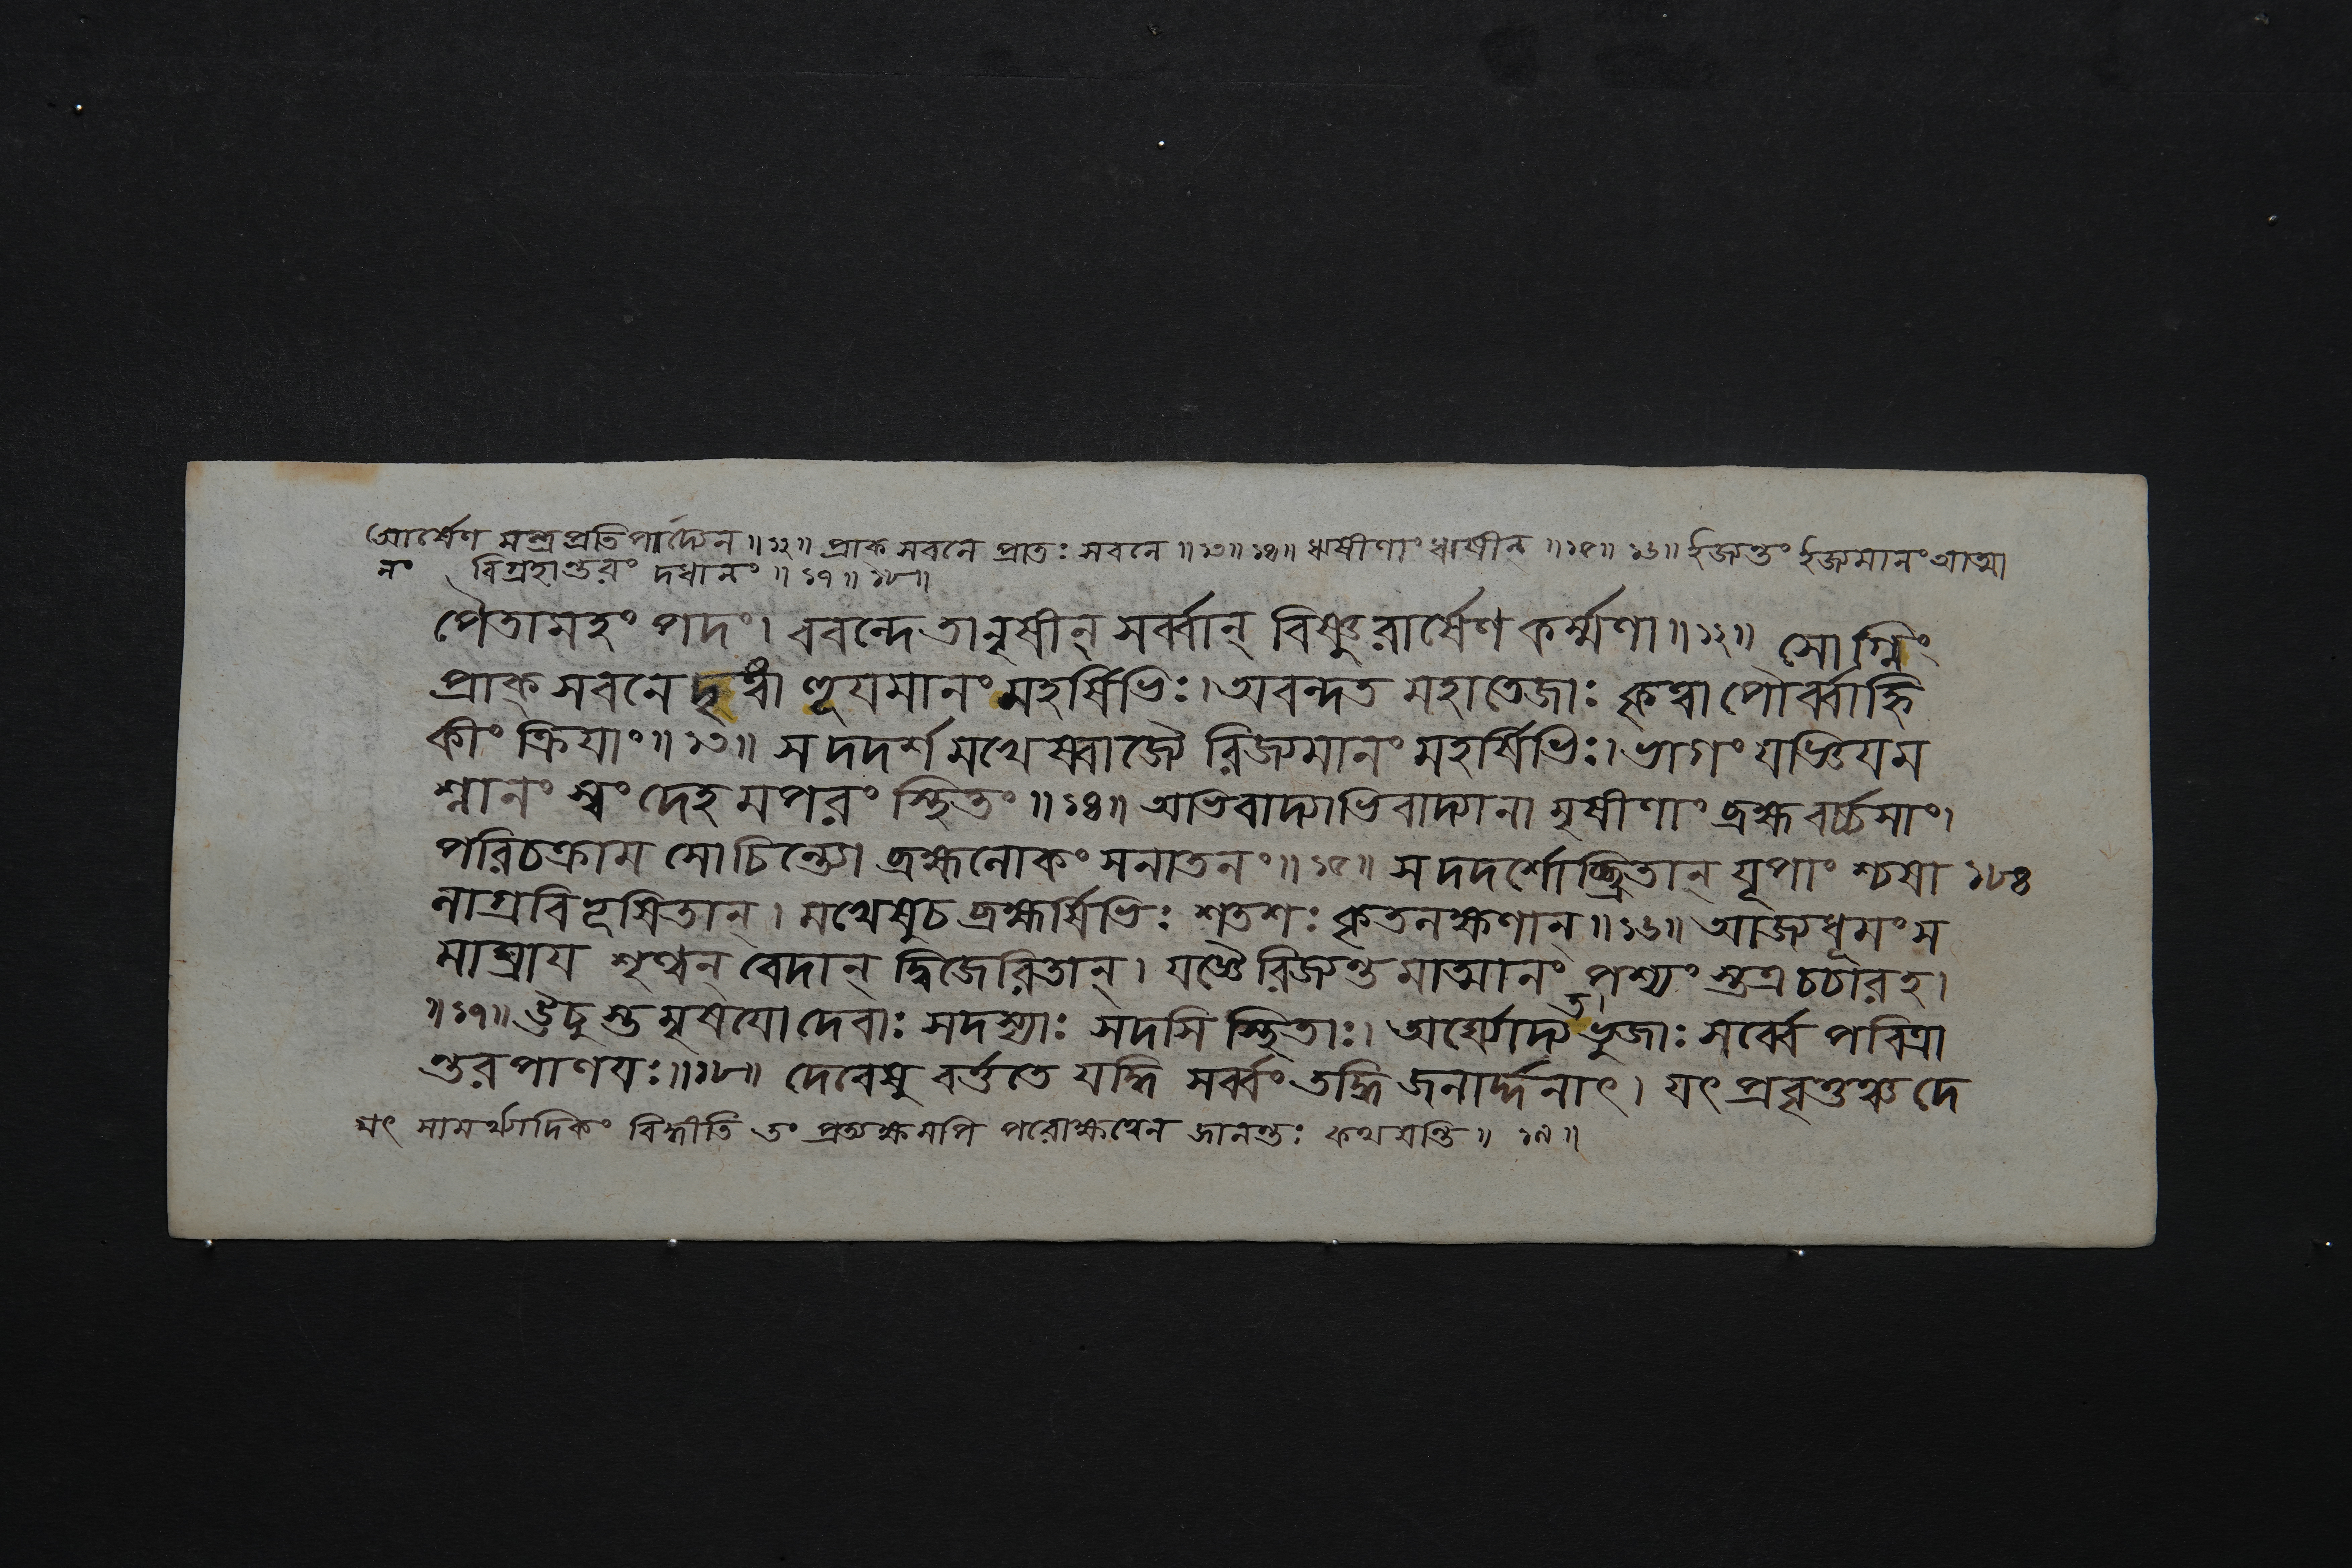 আর্ষেণ মন্ত্রপ্রতিপাদ্যেন ॥১২॥ প্রাক্ সবনে প্রাতঃ সবনে ॥১৩॥১৪॥ ঋষীণাং ঋষীন্ ॥১৫॥১৬॥ ইজ্যন্তং ইজ্যমানং আত্মা
নং বিগ্রহান্তরং দধানং ॥১৭॥১৮॥
পৈতামহং পদং। ববন্দে তানৃষীন্ সর্ব্বান্ বিষ্ণুরার্ষেণ কর্ম্মণা ॥১২॥ সোগ্নিং
প্রাক্ সবনে দৃষ্ট্বা হূযমানং মহর্ষিভিঃ। অবন্দত মহাতেজাঃ কৃত্বা পৌর্ব্বাহ্নি
কীং ক্রিযাং ॥১৩॥ স দদর্শ মখেষ্বাজ্যৈ রিজ্যমানং মহর্ষিভিঃ। ভাগং যজ্ঞিযম
শ্নানং স্বং দেহমপরং স্থিতং ॥১৪॥ অভিবাদ্যাভিবাদ্যানা মৃষীণাং ব্রহ্মবর্চ্চসাং।
পরিচক্রাম সোচিন্ত্যো ব্রহ্মলোকং সনাতনং ॥১৫॥ স দদর্শোচ্ছ্রিতান্ যূপাং শ্চষা ১৮৪
লাগ্রবিভূষিতান্। মখেষু চ ব্রহ্মর্ষিভিঃ শতশঃ কৃতলক্ষণান্ ॥১৬॥ আজ্যধূমং স
মাঘ্রায শৃণ্বন্ বেদান্ দ্বিজেরিতান্। যজ্ঞৈরিজ্যন্তমাত্মানং পশ্যংস্তত্র চচার হ।
॥১৭॥ ঊচুস্তমৃষযো দেবাঃ সদস্যাঃ সদসি স্থিতাঃ। অর্ঘ্যোদ্যতভুজাঃ সর্ব্বে পবিত্রা
ন্তরপাণযঃ ॥১৮॥ দেবেষু বর্ত্ততে যদ্ধি সর্ব্বং তদ্ধি জনার্দ্দনাৎ। যৎ প্রবৃত্তঞ্চ দে
যৎ সামর্থ্যাদিকং বিষ্ণীতি তং প্রত্যক্ষমপি পরোক্ষত্বেন জানন্তঃ কথযন্তি ॥ ১৯ ॥